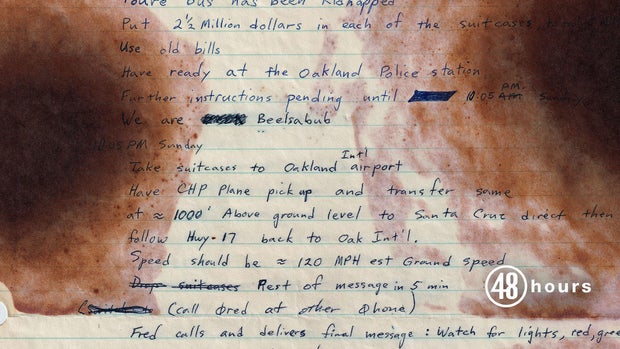 Youre bus has been kidnapped
Put 2½ Million dollars in each of the suitcases,
Use old bills
Have ready at the Oakland Police station
Further instructions pending until 10:05 PM. AM
We are Beelsabub
05 PM Sunday
Take suitcases to Oakland Int'l airport
Have CHP Plane pick up and transfer same
at ≈ 1000' Above ground level to Santa Cruz direct then
follow Hwy-17 back to Oak Int'l.
Speed should be ≈ 120 MPH est Ground speed
Drop suitcases Rest of message in 5 min
(call Φred at other Φhone)
Fred calls and delivers final message: Watch for lights, red, gree
48 hours